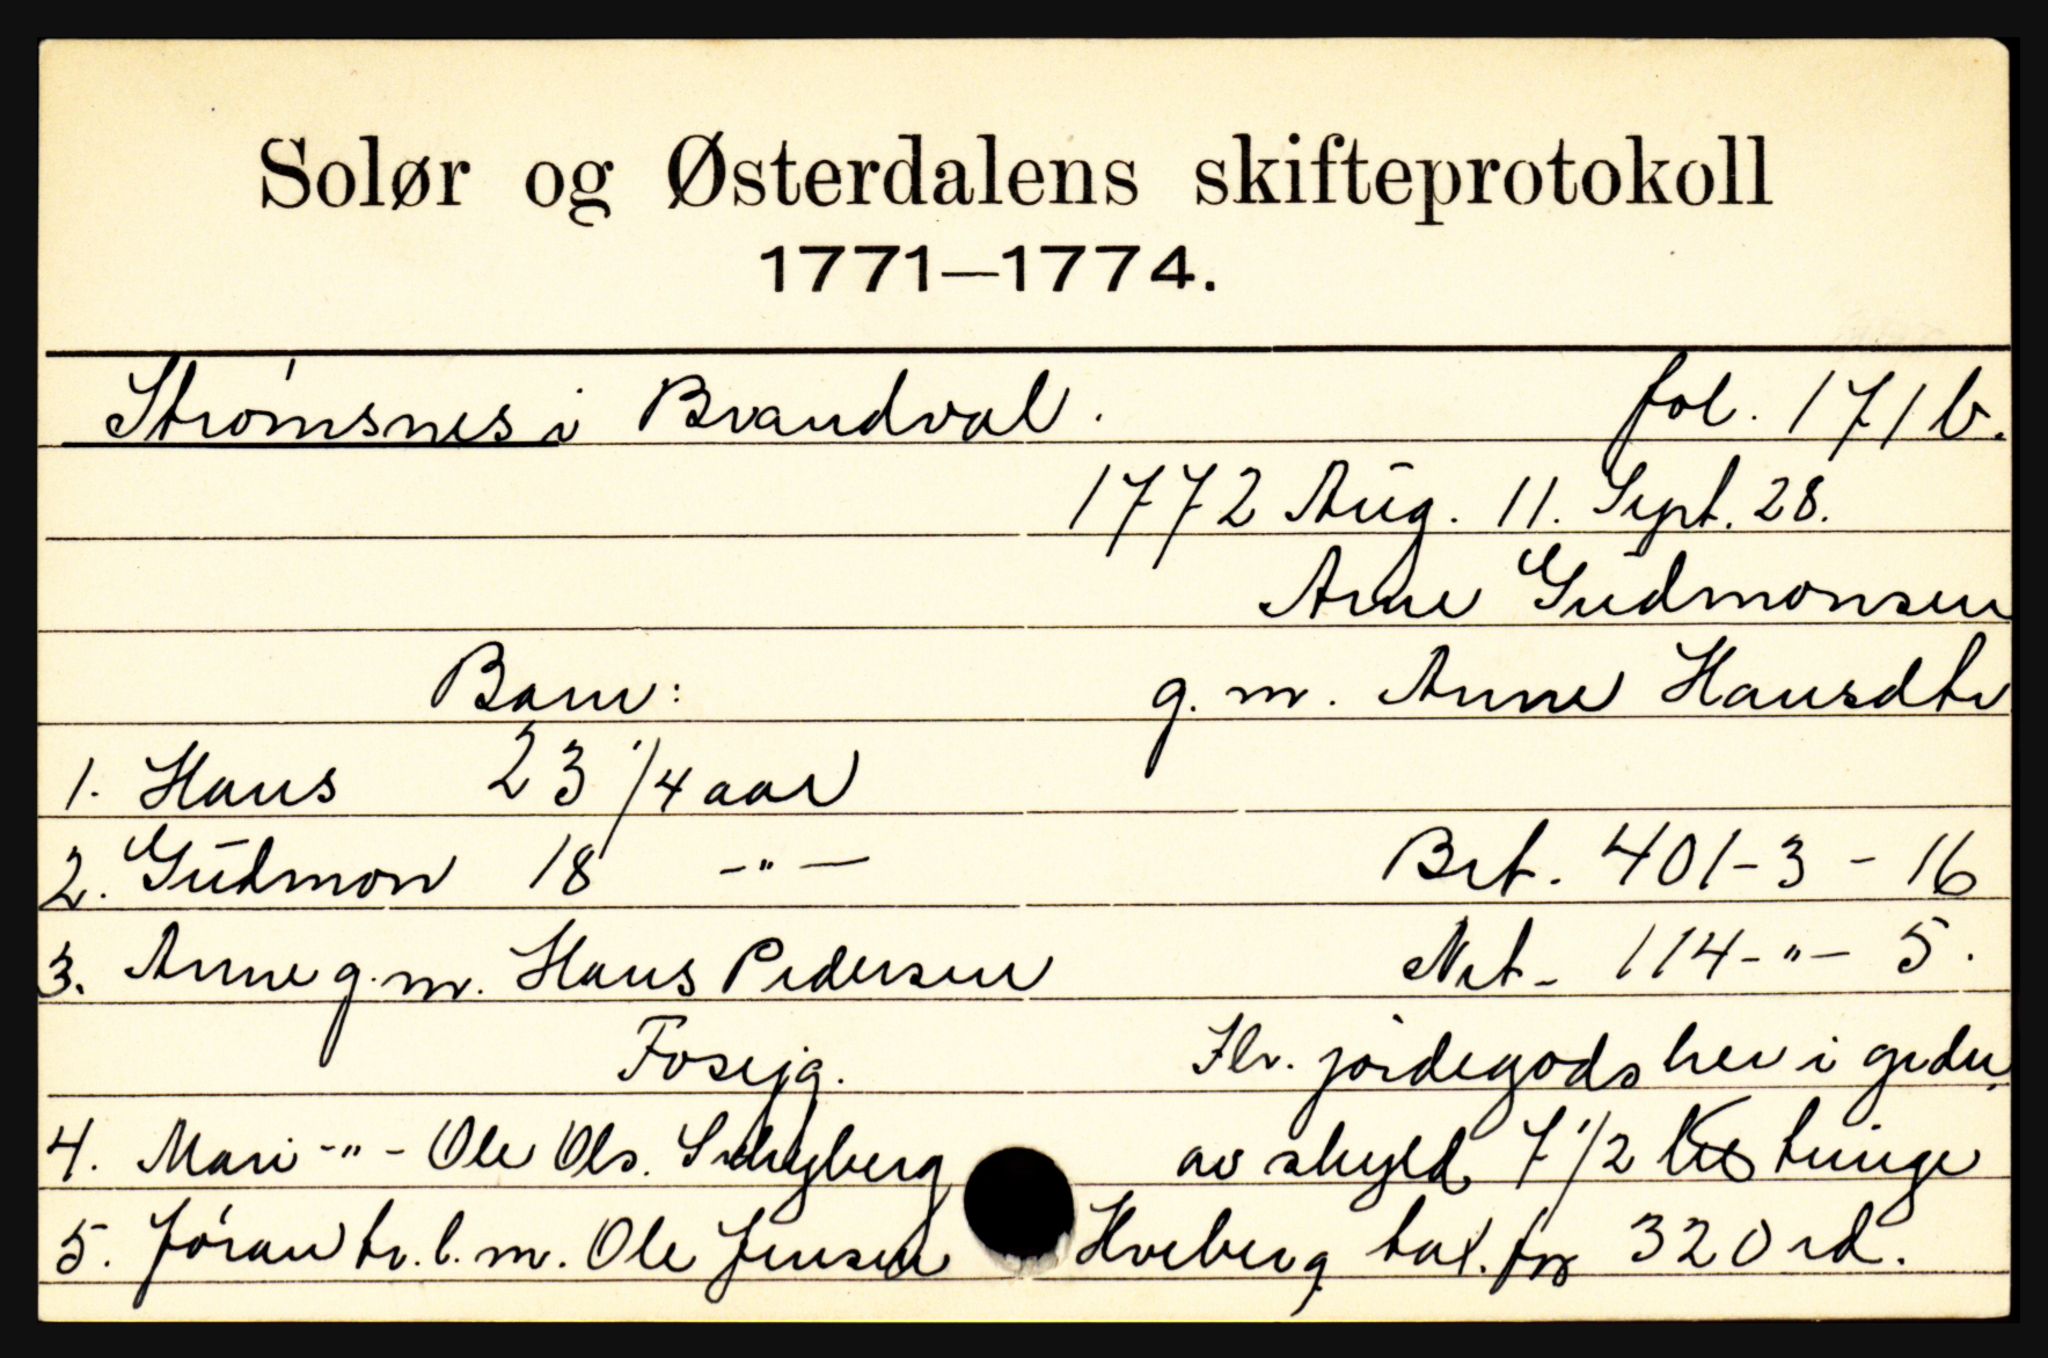 Solør og Østerdalens skifteprotokoll
1771—1774.
Strømsnes i Brandval. fol. 171 b.
1772 Aug. 11. Sept. 28.
Arne Gudmonsen
Barn: g. m. Anne Hansdtr
1. Hans 23 1/4 aar
2. Gudmon 18 -"- Brt. 401-3-16
3. Anne g. m. Hans Pedersen Net- 114-"-5.
i grden
4. Mari -"- Ole Ols. av skyld 7 1/2 tunge
5. Jøran tr. l. m. Ole Jensen Hveberg tax. for 320 rd.